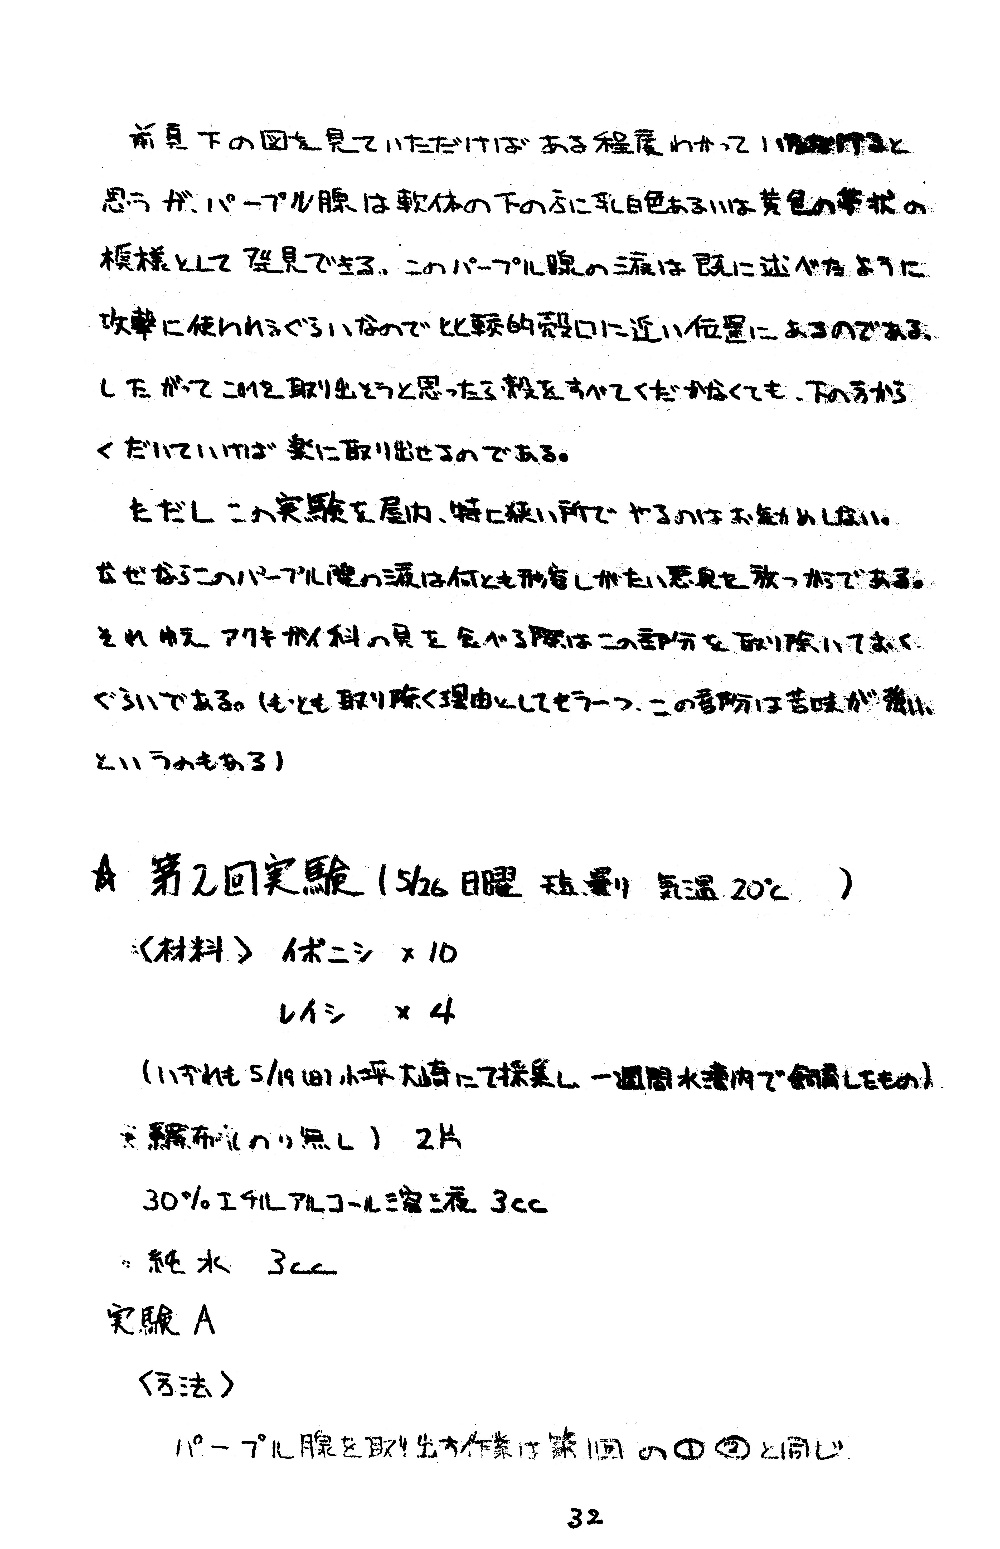 前頁下の図を見ていただけばある程度わかっていただけると
思うが、パープル腺は軟体の下のふに乳白色あるいは黄色の帯状の
模様として発見できる。このパープル腺の液は既に述べたように
攻撃に使われるぐらいなので比較的殻口に近い位置にあるのである。
したがってこれを取り出そうと思ったら殻をすべてくだかなくても、下の方から
くだいていけば楽に取り出せるのである。
ただしこの実験を屋内、特に狭い所でやるのはお勧めしない。
なぜならこのパープル腺の液は何とも形容しがたい悪臭を放つからである。
それゆえアクキガイ科の貝を食べる際はこの部分を取り除いておく
ぐらいである。(もっとも取り除く理由としてもう一つ、この部分は苦味が強い、
というのもある)
☆ 第2回実験 (5/26 日曜 天気 曇り 気温 20℃ )
〈材料〉 イボニシ ×10
レイシ ×4
(いずれも 5/19(日)小坪大崎にて採集し 一週間水槽内で飼育したもの)
絹布(のり無し) 2片
30%エチルアルコール溶液 3cc
純水 3cc
実験 A
〈方法〉
パープル腺を取り出す作業は第1回の①②と同じ
32